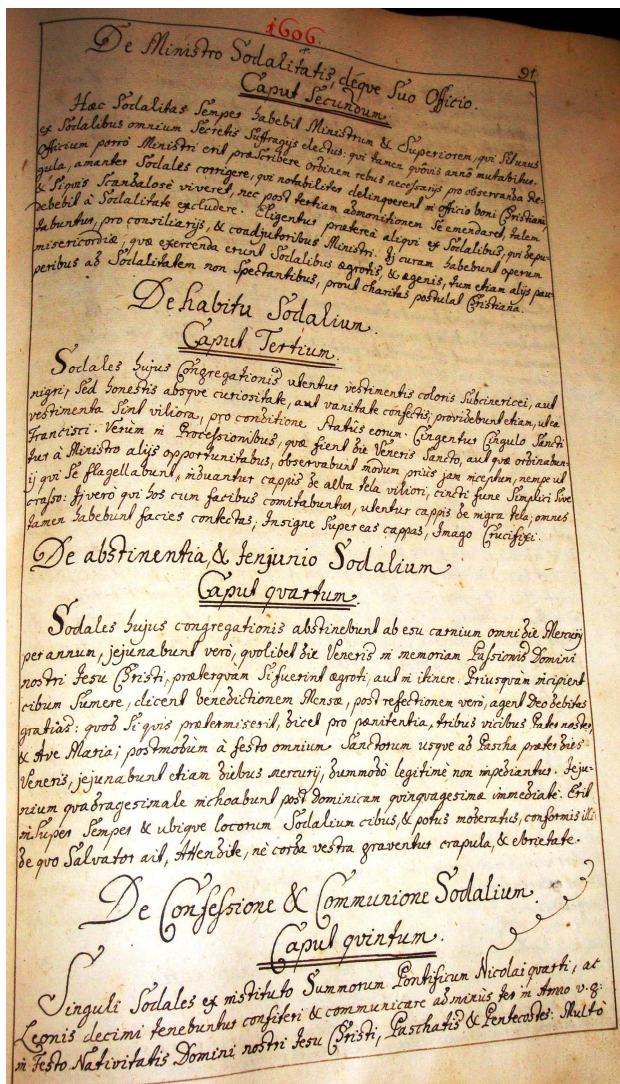 1606.
91
De Ministro Sodalitatis, déque Suo Officio.
Caput Secundum.
Hæc Sodalitas Semper habebit Ministrum & Superiorem, qui Sit unus
ex Sodalibus omnium Secretis Suffragijs electus: qui tamen quôvis annô mutabitur.
Officium porrò Ministri erit præscribere ordinem rebus necessarijs pro observanda Re-
gula, amanter Sodales corrigere, qui notabiliter delinquerent in officio boni Christiani,
& Siquis Scandalosè viveret, nec post tertiam admonitionem Se emendaret, talem
debebit à Sodalitate excludere. Eligentur præterea aliqui ex Sodalibus, qui depu-
tabuntur, pro consiliarijs, & coadjutoribus Ministri. Ij curam habebunt operum
misericordiæ, quæ exercenda erunt Sodalibus ægrotis, & egenis, tum etiam alijs pau-
peribus ad Sodalitatem non Spectantibus, prout charitas postulat Christiana.
De habitu Sodalium.
Caput Tertium.
Sodales hujus Congregationis utentur vestimentis coloris Subcinericei, aut
nigri, Sed honestis absque curiositate, aut vanitate confectis; providebunt etiam, ut ea
vestimenta Sint viliora, pro conditione Statûs eorum. Cingentur Cingulo Sancti
Francisci. Verùm in Processionibus, quæ fient die Veneris Sancto, aut quæ ordinabun-
tur à Ministro alijs opportunitabus, observabunt modum priùs jam inceptum, nempe ut
ij qui Se flagellabunt, induantur cappis de alba tela viliori, cincti fune Simplici Sive
crasso: Ij verò qui hos cum facibus comitabuntur, utentur cappis de nigra tela; omnes
tamen habebunt facies contectas; Insigne Super eas cappas, Imago Crucifixi.
De abstinentia, & Jenjunio Sodalium
Caput quartum.
Sodales hujus congregationis abstinebunt ab esu carnium omni die Mercurij
per annum, jejunabunt verò, quolibet die Veneris in memoriam Passionis Domini
nostri Jesu Christi, præterquam Si fuerint ægroti, aut in itinere. Priusquàm incipient
cibum Sumere, dicent benedictionem Mensæ, post refectionem verò, agent Deo debitas
gratias: quod Si quis prætermiserit, dicet pro pænitentia, tribus vicibus Pater noster,
& Ave Maria; postmodum à festo omnium Sanctorum usque ad Pascha præter dies
Veneris, jejunabunt etiam diebus Mercurij, dummodò legitimè non impediantur. Jeju-
nium quadragesimale inchoabunt post Dominicam quinquagesimæ immediatè. Erit
insuper Semper & ubique locorum Sodalium cibus, & potus moderatus, conformis illi
de quo Salvator ait, Attendite, nè corda vestra graventur crapula, & ebrietate.
De Confessione & Communione Sodalium.
Caput quintum.
Singuli Sodales ex instituto Summorum Pontificum Nicolai quarti, ac
Leonis decimi tenebuntur confiteri & communicare ad minùs ter in Anno v.g:
in Festo Nativitatis Domini nostri Jesu Christi, Paschatis & Pentecostes: Multò